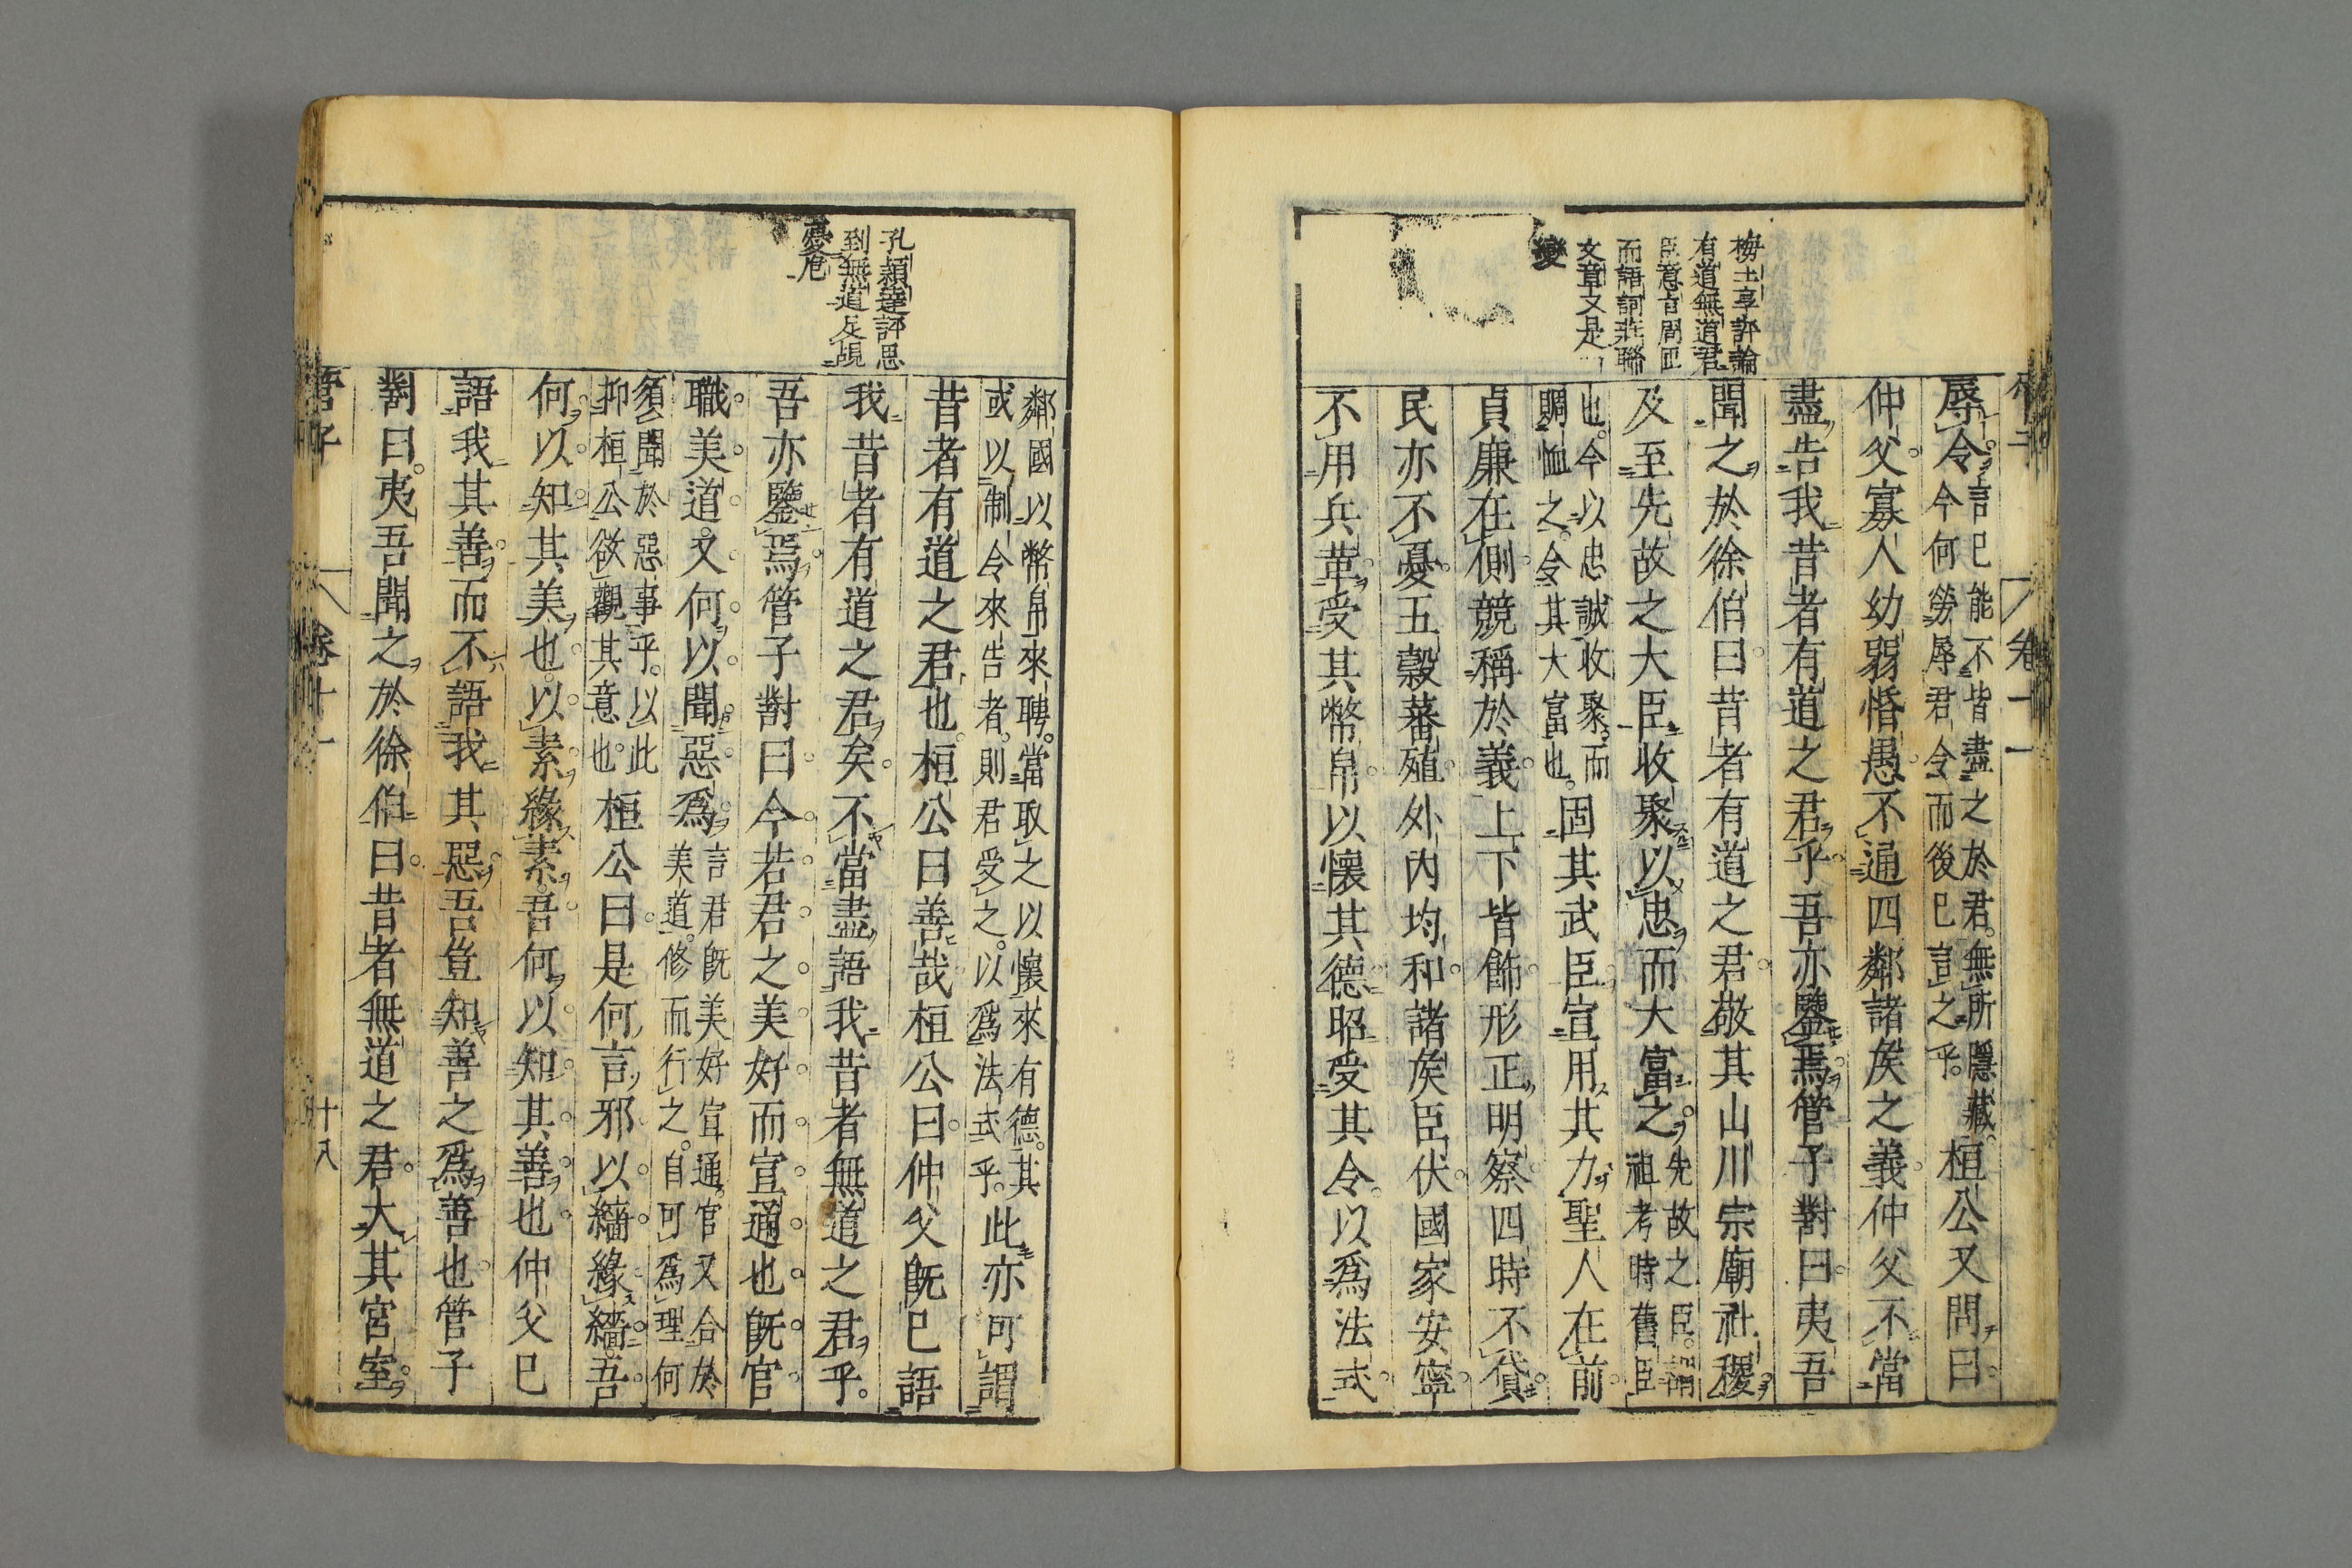 梅士享評論
有道無道君
臣意古問正
而語詞莊聯
文章又是一
變
卷十一
辱令言已能不皆盡之於君。無所隱藏。
今何勞辱君令而後已豈之乎。桓公又問曰
仲父寡人幼弱惛愚不通四鄰諸矦之義仲父不當
盡告我昔者有道之君乎吾亦鑒焉管子對曰夷吾
聞之於徐伯曰昔者有道之君敬其山川宗廟社稷
及至先故之大臣收聚以忠而大富之先故之臣。謂
祖考時舊臣
也。今以忠誠收聚。而
賙恤之。令其大富也。固其武臣宣用其力聖人在前
貞廉在側競稱於義上下皆飾形正明察四時不貸
民亦不憂五穀蕃殖外内均和諸矦臣伏國家安寧
不用兵革受其幣帛以懷其德昭受其令以爲法式
孔頴達評思
到無道足覘
憂危
鄰國以幣帛來聘。當取之以懷來有德。其
或以制令來告者。則君受之。以爲法式乎。此亦可謂
昔者有道之君也桓公曰善哉桓公曰仲父旣已語
我昔者有道之君矣不當盡語我昔者無道之君乎。
吾亦鑒焉管子對曰今若君之美好而宣通也旣官
職美道。又何以聞惡爲言君旣美好宣通。官又合於
美道。修而行之。自可爲理何
須聞於惡事乎。以此
抑桓公欲觀其意也。桓公曰是何言邪以緇緣緇吾
何以知其美也。以素緣素。吾何以知其善也仲父已
語我其善而不語我其惡吾豈知善之爲善也管子
對曰。夷吾聞之於徐伯曰昔者無道之君大其宮室。
管子
卷十一
十八